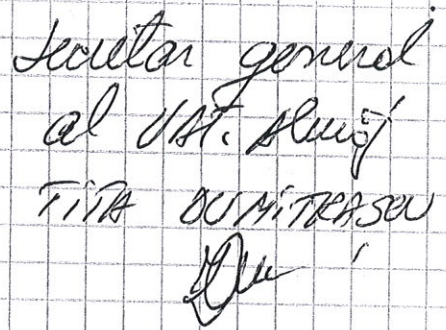 Secretar general
al UAT. Almăj
TITA DUMITRAȘCU